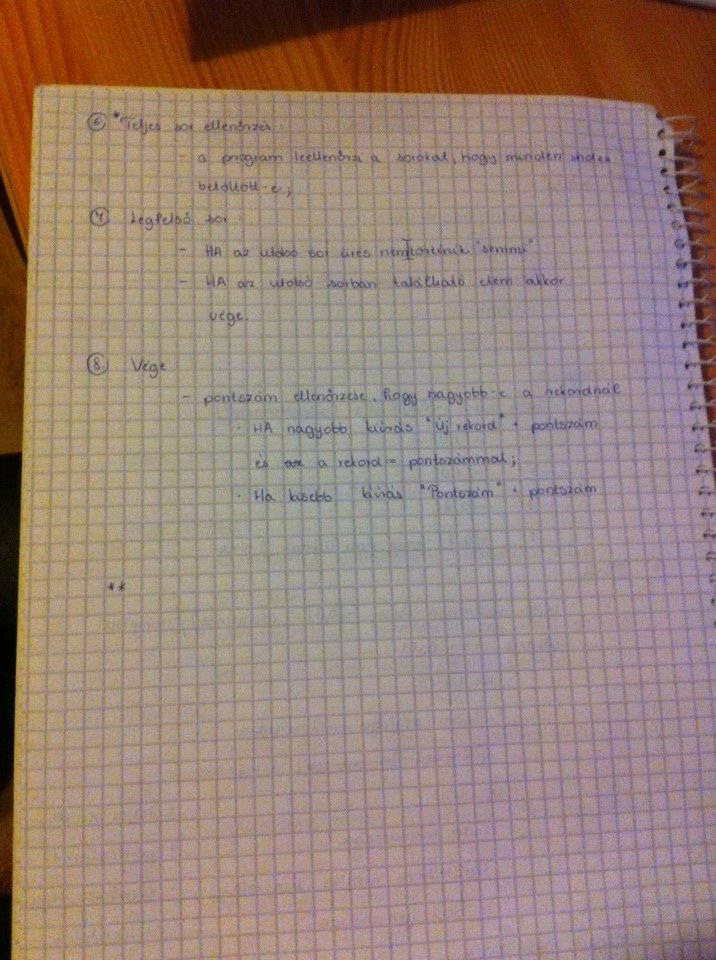 ⑥ *Teljes sor ellenőrzés:
- a program leellenőrzi a sorokat, hogy minden
betöltött-e;
⑦ Legfelső sor:
- HA az utolsó sor üres nem történik "semmi"
- HA az utolsó sorban található elem akkor
vége.
⑧ Vége
- pontszám ellenőrzése, hogy nagyobb-e a rekordnál
· HA nagyobb kiírás "Új rekord" + pontszám
és a rekord = pontszámmal;
· Ha kisebb kiírás "Pontszám" + pontszám
**